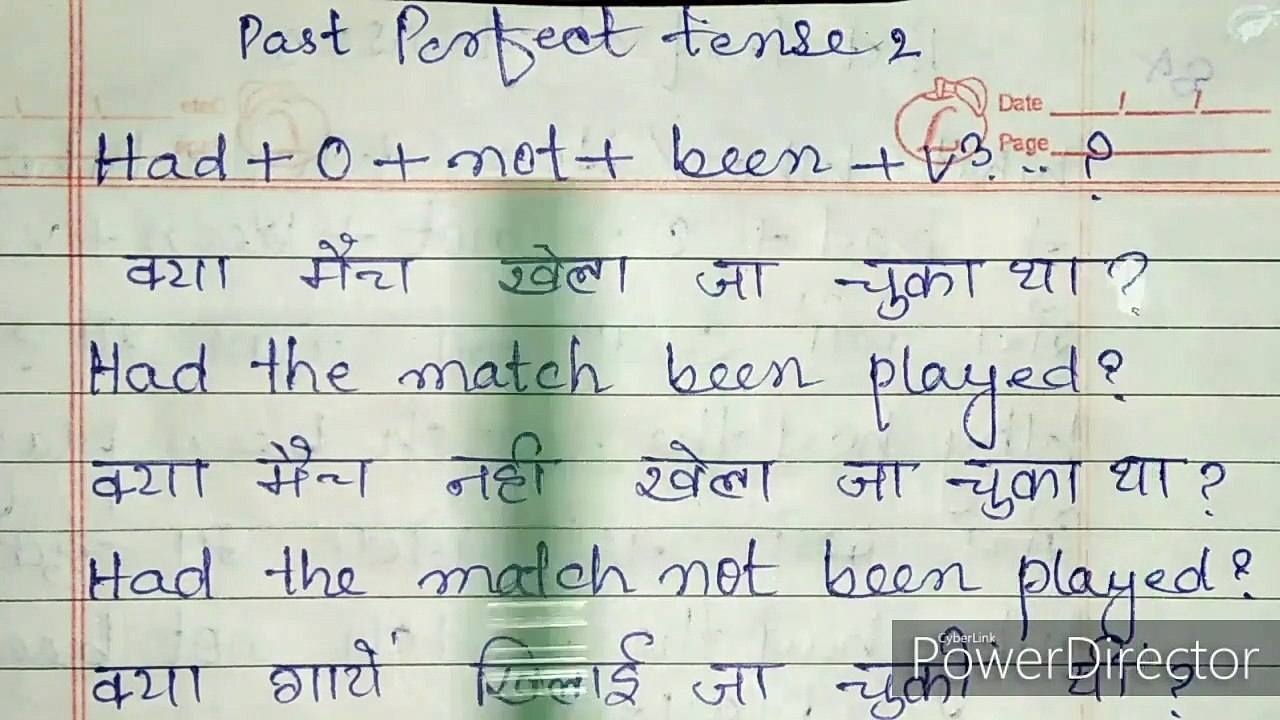 Past Perfect tense 2
Date
Page
Had + O + not + been + V3... ?
क्या मैच खेला जा चुका था ?
Had the match been played?
क्या मैच नही खेला जा चुका था ?
Had the match not been played?
CyberLink
PowerDirector
क्या गायें खिलाई जा चुकी थी ?